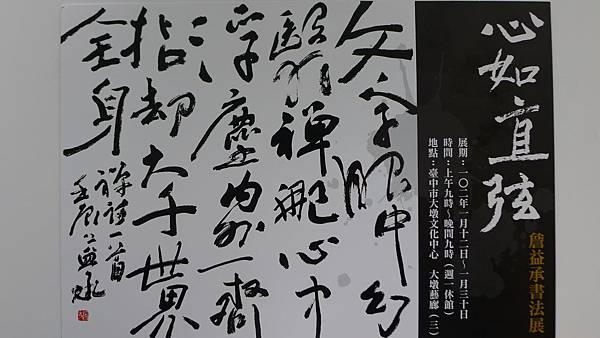 心如直弦
詹益承書法展
展期：一〇二年一月十二日～一月三十日
時間：上午九時～晚間九時（週一休館）
地點：臺中市大墩文化中心　大墩藝廊（三）
文字眼中幻
翳禪觀心中
浮塵內外一齊
拈却大千世界
全身
禪詩一首
壬辰益承